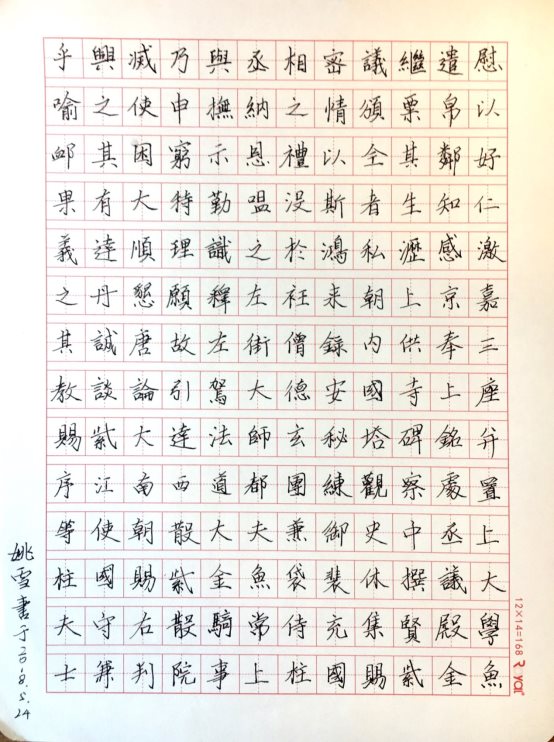 乎興減乃與丞相密議繼遣慰
喻之使申撫納之情頒粟帛以
卹其困窮示恩禮以全其鄰好
果有大特勤嗢沒斯者生知仁
義達順理識之於鴻私瀝感激
之丹懇願釋左衽来朝上京嘉
其誠唐故左街僧錄内供奉三
教談論引駕大德安國寺上座
賜紫大達法師玄秘塔碑銘并
序江南西道都團練觀察處置
等使朝散大夫兼御史中丞上
柱國賜紫金魚袋裴休撰議大
夫守右散騎常侍充集賢殿學
士兼判院事上柱國賜紫金魚
姚雪書于2018.5.24
12×14=168